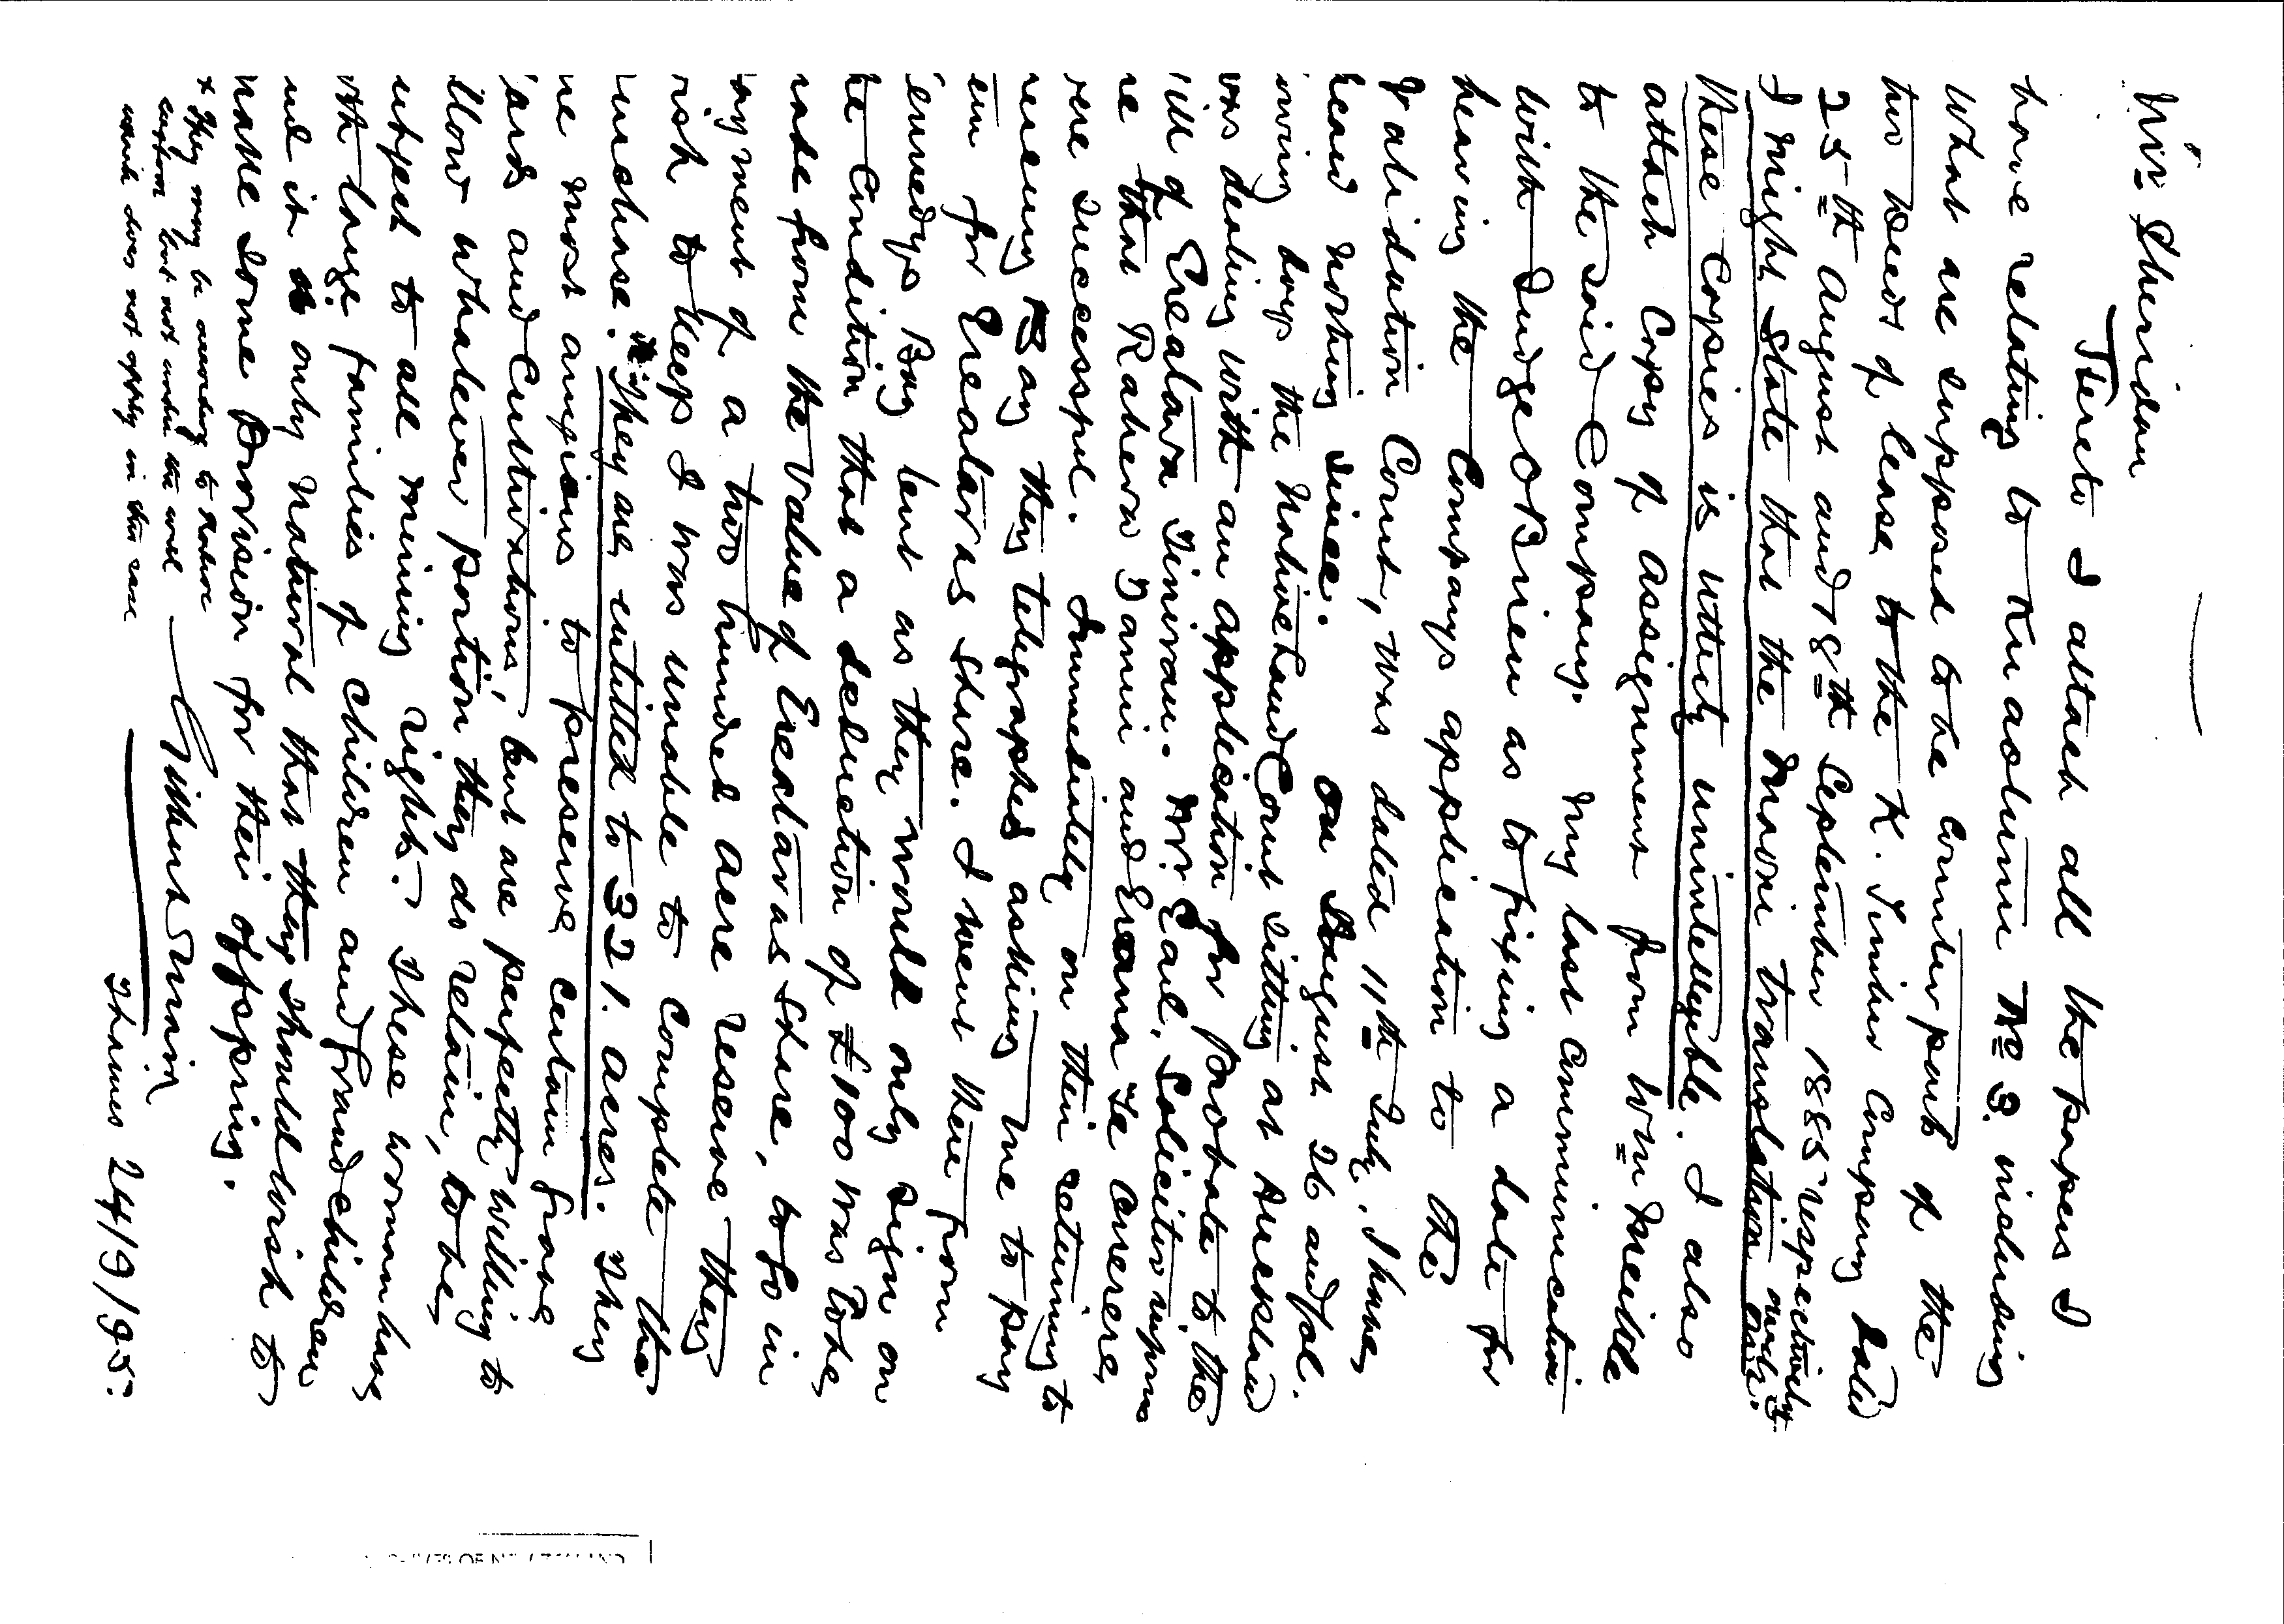 Mr Sheridan
Hereto I attach all the papers I
have relating to Kuaotunu No 3. including
what are supposed to be counterparts of the
two Deeds of lease to the K. Timber Company dated
25th August and 18th September 1885 respectively
I might state that the Maori translation
these Copies is utterly unintelligible. I also
attach Copy of assignment from Wm Meikle
to the said Company. My last communication
with Judge O'Brien as to fixing a date for
hearing the Companys application to the
Validation Court, was dated 11th July. I have
heard nothing since. On August 26 and fol.
owing days the Native Land Court sitting at Auckland
was dealing with an application for Probate to the
will of Ereatara Tinirau. Mr Earl, Solicitor informs
me that Rahera and Te Arerere
were successful. Immediately on their returning to
Bay they telegraphed asking me to pay
em for Ereataras share. I went there from
Kennedys Bay but as they would only sign on
he Condition that a deduction of £100 was to be
made from the value of Ereataras share, to fo in
ayment of a two hundred acre reserve they
wish to keep I was unable to complete the
urchase. They are entitled to 321. acres. They
are most anxious to preserve certain grave
yards and Cultivations, but are perfectly willing to
llow whatever portion they do retain, to be
ubject to all mining rights. These women have
ith large families of children and Grandchildren
and it is only natural that they should wish to
make some Provision for their offspring.
x They may be according to Native
custom but not under the will
which does not apply in this case
Gilbert Mair
Thames 24/9/95.